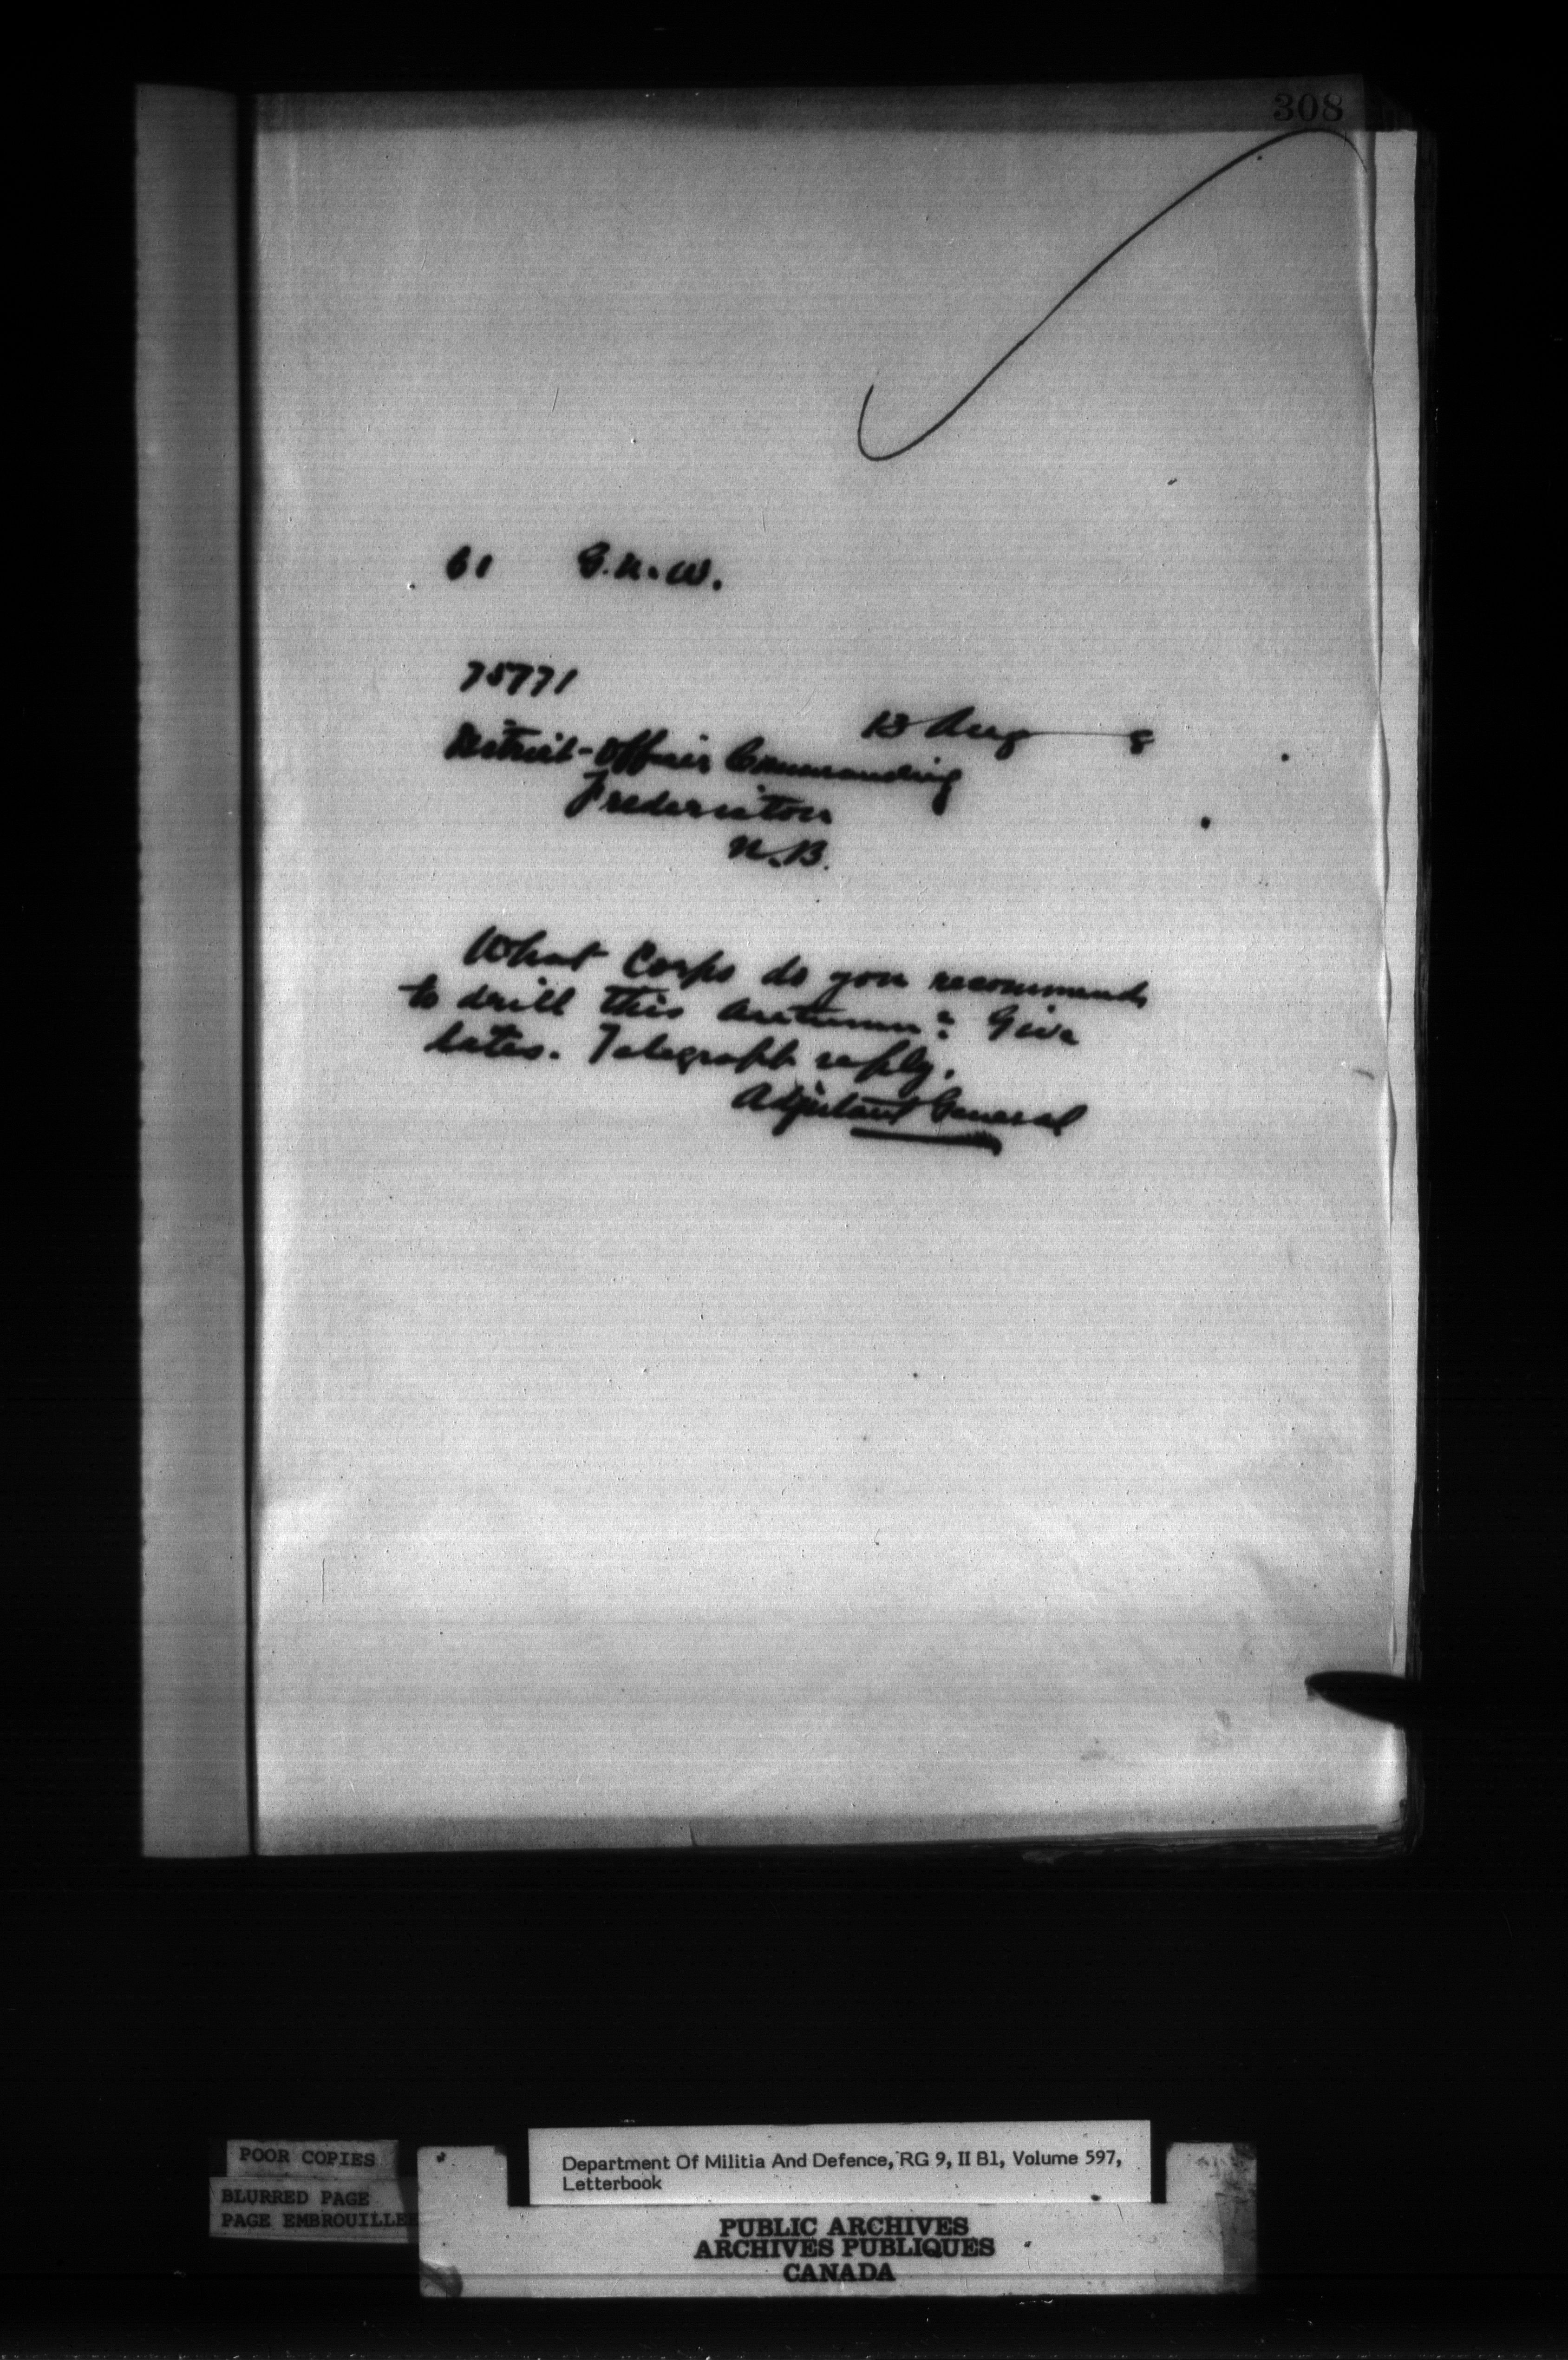 308
61 G.N.W.
75771
13 Aug 8
District Officer Commanding
Fredericton
N.B.
What Corps do you recommend
to drill this autumn? Give
dates. Telegraph reply.
Adjutant General
POOR COPIES
BLURRED PAGE
PAGE EMBROUILLEE
Department Of Militia And Defence, RG 9, II B1, Volume 597,
Letterbook
PUBLIC ARCHIVES
ARCHIVES PUBLIQUES
CANADA